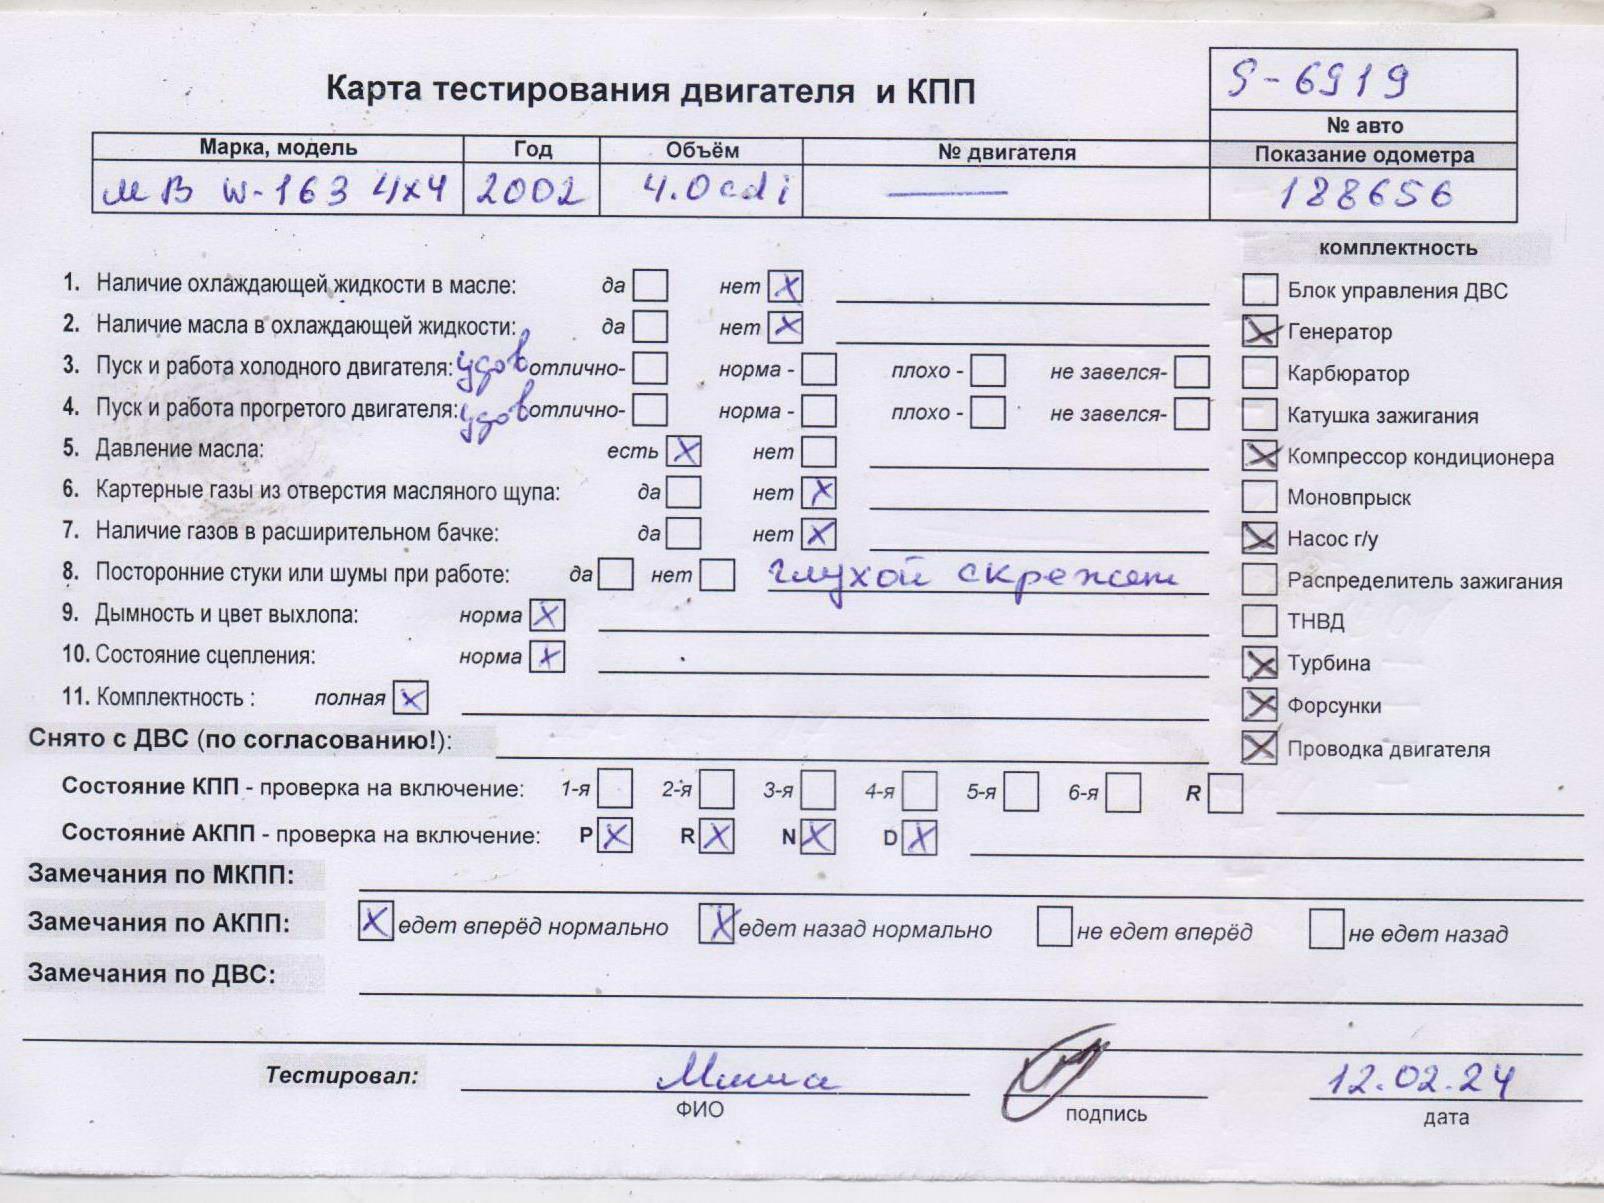 Карта тестирования двигателя и КПП
S-6919
№ авто
Марка, модель Год Объём № двигателя Показание одометра
МВ W-163 4x4 2002 4.0cdi — 188656
комплектность
1. Наличие охлаждающей жидкости в масле: да нет X
Блок управления ДВС
2. Наличие масла в охлаждающей жидкости: да нет X
X Генератор
3. Пуск и работа холодного двигателя: удов отлично- норма - плохо - не завелся-
Карбюратор
4. Пуск и работа прогретого двигателя: удов отлично- норма - плохо - не завелся-
Катушка зажигания
5. Давление масла: есть X нет
X Компрессор кондиционера
6. Картерные газы из отверстия масляного щупа: да нет X
Моновпрыск
7. Наличие газов в расширительном бачке: да нет X
X Насос г/у
8. Посторонние стуки или шумы при работе: да нет глухой скрежет
Распределитель зажигания
9. Дымность и цвет выхлопа: норма X
ТНВД
10. Состояние сцепления: норма X
X Турбина
11. Комплектность : полная X
X Форсунки
Снято с ДВС (по согласованию!):
X Проводка двигателя
Состояние КПП - проверка на включение: 1-я 2-я 3-я 4-я 5-я 6-я R
Состояние АКПП - проверка на включение: P X R X N X D X
Замечания по МКПП:
Замечания по АКПП: X едет вперёд нормально X едет назад нормально не едет вперёд не едет назад
Замечания по ДВС:
Тестировал: Миша 12.02.24
ФИО подпись дата